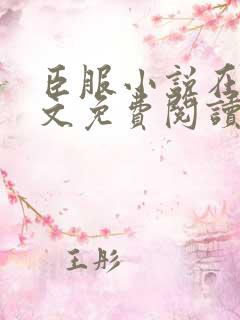 臣服小説在
文免費閱讀
王彤